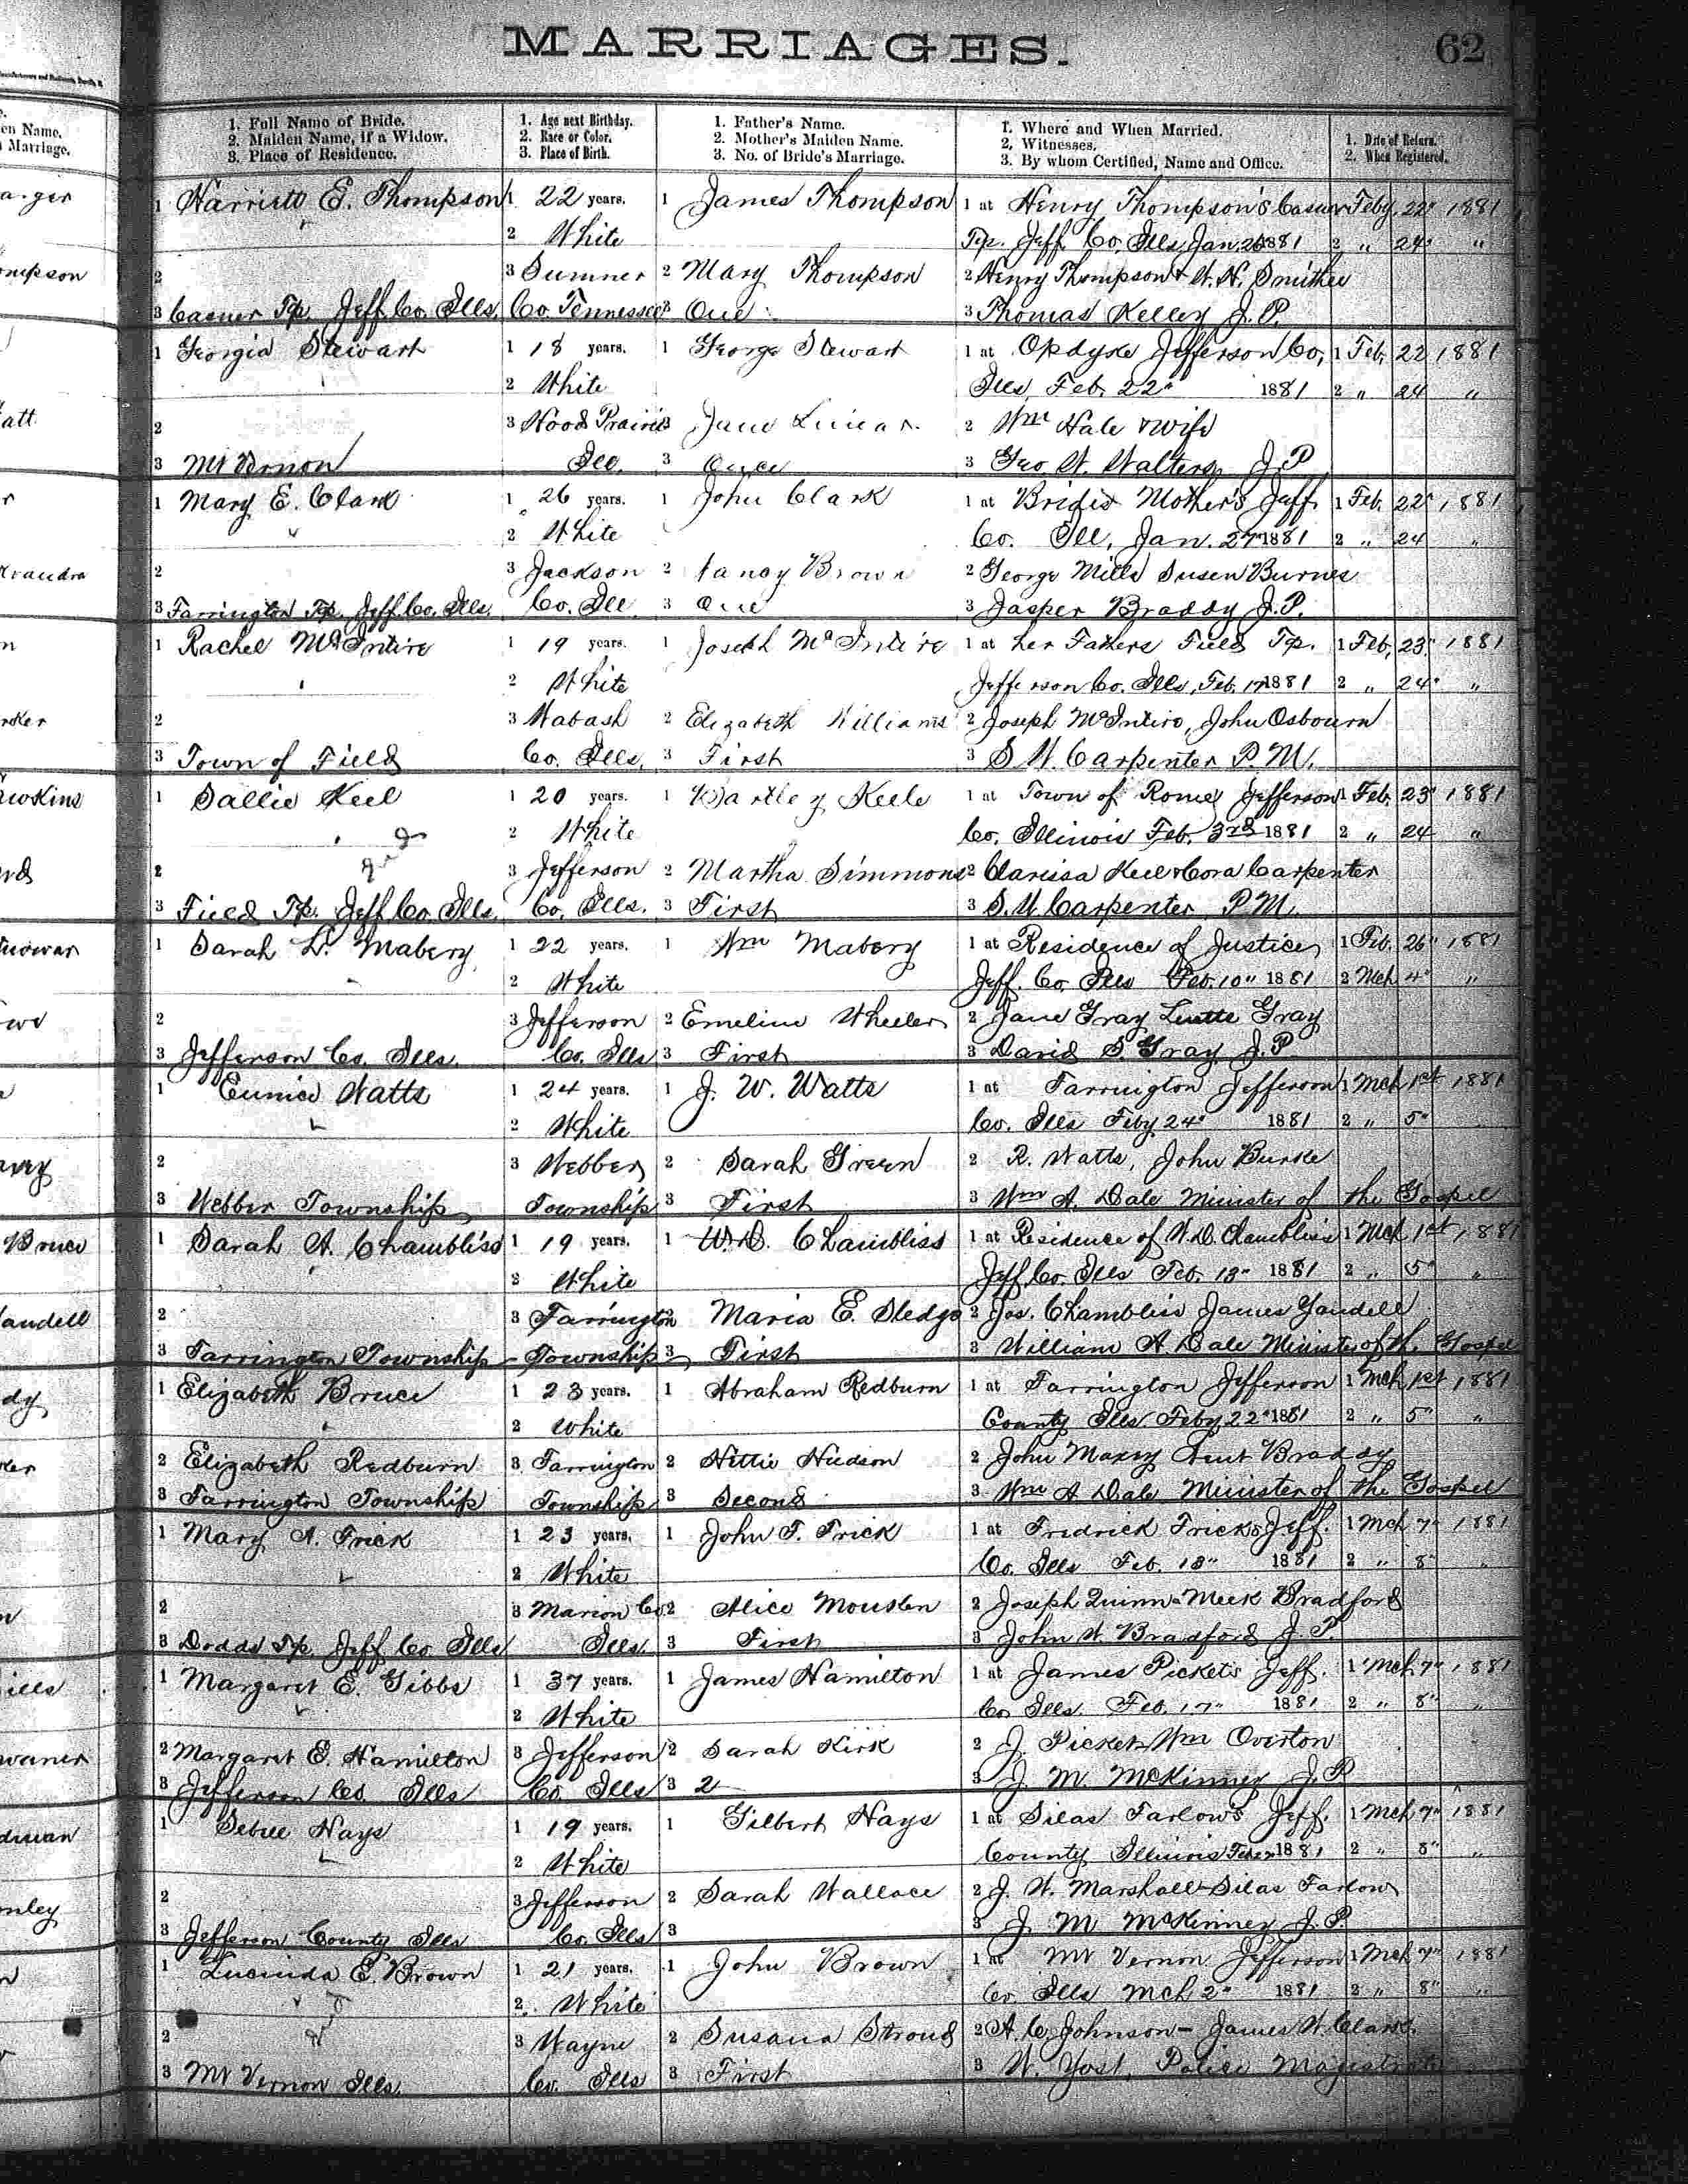 MARRIAGES.
62
en Name.
Marriage.
1. Full Name of Bride.
2. Maiden Name, if a Widow.
3. Place of Residence.
1. Age next Birthday.
2. Race or Color.
3. Place of Birth.
1. Father's Name.
2. Mother's Maiden Name.
3. No. of Bride's Marriage.
1. Where and When Married.
2. Witnesses.
3. By whom Certified, Name and Office.
1. Date of Return.
2. When Registered.
1 Harriett E. Thompson 1 22 years. 1 James Thompson 1 at Henry Thompson's Casner Feby 22" 1881
2 White Tp. Jeff Co. Ills Jan 1881 2 " 24" "
2 3 Sumner 2 Mary Thompson 2 Henry Thompson & W. H. Smither
3 Casner Tp Jeff. Co. Ills. Co. Tennessee 3 One 3 Thomas Kelley J. P.
1 Georgia Stewart 1 18 years. 1 George Stewart 1 at Opdyke Jefferson Co, 1 Feb, 22 1881
2 White Ills, Feb. 22" 1881 2 " 24 "
2 3 Hood Prairie Jane 2 Wm Hale & wife
3 Mt Vernon Ill. 3 Once 3 Geo. W. Walters J. P
1 Mary E. Clark 1 26 years. 1 John Clark 1 at Brides Mother's Jeff. 1 Feb. 22" 1881
2 White Co. Ill, Jan. 27" 1881 2 " 24 "
2 3 Jackson 2 Nancy Brown 2 George Mills Susen Burnes
3 Farrington Tp. Jeff. Co. Ills. Co. Ill 3 One 3 Jasper Braddy J. P.
1 Rachel McIntire 1 19 years. 1 Joseph McIntire 1 at her Fathers Field Tp. 1 Feb, 23" 1881
2 White Jefferson Co. Ills, Feb. 17 1881 2 " 24" "
2 3 Wabash 2 Elizabeth Williams 2 Joseph McIntire, John Osbourn
3 Town of Field Co. Ills, 3 First 3 S. W. Carpenter P. M.
1 Sallie Keel 1 20 years. 1 Bartley Keele 1 at Town of Rome Jefferson 1 Feb. 23" 1881
2 White Co. Illinois Feb. 3rd 1881 2 " 24 "
2 3 Jefferson 2 Martha Simmons 2 Clarissa Keel & Cora Carpenter
3 Field Tp. Jeff Co. Ills. Co. Ills. 3 First 3 S. W. Carpenter P. M.
1 Sarah L. Mabery 1 22 years. 1 Wm Mabery 1 at Residence of Justice 1 Feb. 26" 1881
2 White Jeff. Co. Ills Feb. 10" 1881 2 Mch 4" "
2 3 Jefferson 2 Emeline Wheeler 2 Jane Gray Gray
3 Jefferson Co. Ills. Co. Ills 3 First 3 David S. Gray J. P
1 Eunice Watts 1 24 years. 1 J. W. Watts 1 at Farrington Jefferson 1 Mch 1st 1881
2 White Co. Ills Feby 24" 1881 2 " 5"
2 3 Webber 2 Sarah Green 2 R. Watts, John Burke
3 Webber Township Township 3 First 3 Wm A. Dale Minister of the Gospel
1 Sarah A. Chambliss 1 19 years. 1 W. D. Chambliss 1 at Residence of W. D. Chambliss 1 Mch 1st 1881
2 White Jeff. Co. Ills Feb. 13" 1881 2 " 5" "
2 3 Farrington 2 Maria E. Sledge 2 Jos. Chambliss James Yandell
3 Farrington Township Township 3 First 3 William A. Dale Minister of th. Gospel
1 Elizabeth Bruce 1 23 years. 1 Abraham Redburn 1 at Farrington Jefferson 1 Mch 1st 1881
2 White County Ills Feby 22" 1881 2 " 5" "
2 Elizabeth Redburn 3 Farrington 2 Hettie Hudson 2 John Maxey Braddy
3 Farrington Township Township 3 Second 3 Wm A Dale Minister of the Gospel
1 Mary A. Frick 1 23 years. 1 John F. Frick 1 at Fredrick Fricks Jeff. 1 Mch 7" 1881
2 White Co. Ills Feb. 13" 1881 2 " 8" "
2 3 Marion Co. 2 Alice 2 Joseph Quinn Meek Bradford
3 Dodds Tp. Jeff Co. Ills Ills. 3 First 3 John W. Bradford J. P.
1 Margaret E. Gibbs 1 37 years. 1 James Hamilton 1 at James Pickets Jeff. 1 Mch 7" 1881
2 White Co Ills. Feb. 17" 1881 2 " 8" "
2 Margaret E. Hamilton 3 Jefferson 2 Sarah Kirk 2 J. Picket Wm Overton
3 Jefferson Co. Ills Co. Ills 3 2 3 J. M. McKinney J. P
1 Hays 1 19 years. 1 Gilbert Hays 1 at Silas Farlow's Jeff. 1 Mch 7" 1881
2 White County Illinois 1881 2 " 8" "
2 3 Jefferson 2 Sarah Wallace 2 J. W. Marshall Silas Farlow
3 Jefferson County Ills Co. Ills 3 3 J. M McKinney J. P.
1 Lucinda E. Brown 1 21 years. 1 John Brown 1 at Mt Vernon Jefferson 1 Mch 7" 1881
2 White Co. Ills Mch 2" 1881 2 " 8" "
2 3 Wayne 2 Susana Stroud 2 A. C. Johnson - James W. Clark
3 Mt Vernon Ills. Co. Ills 3 First 3 W. Yost, Police Magistrate